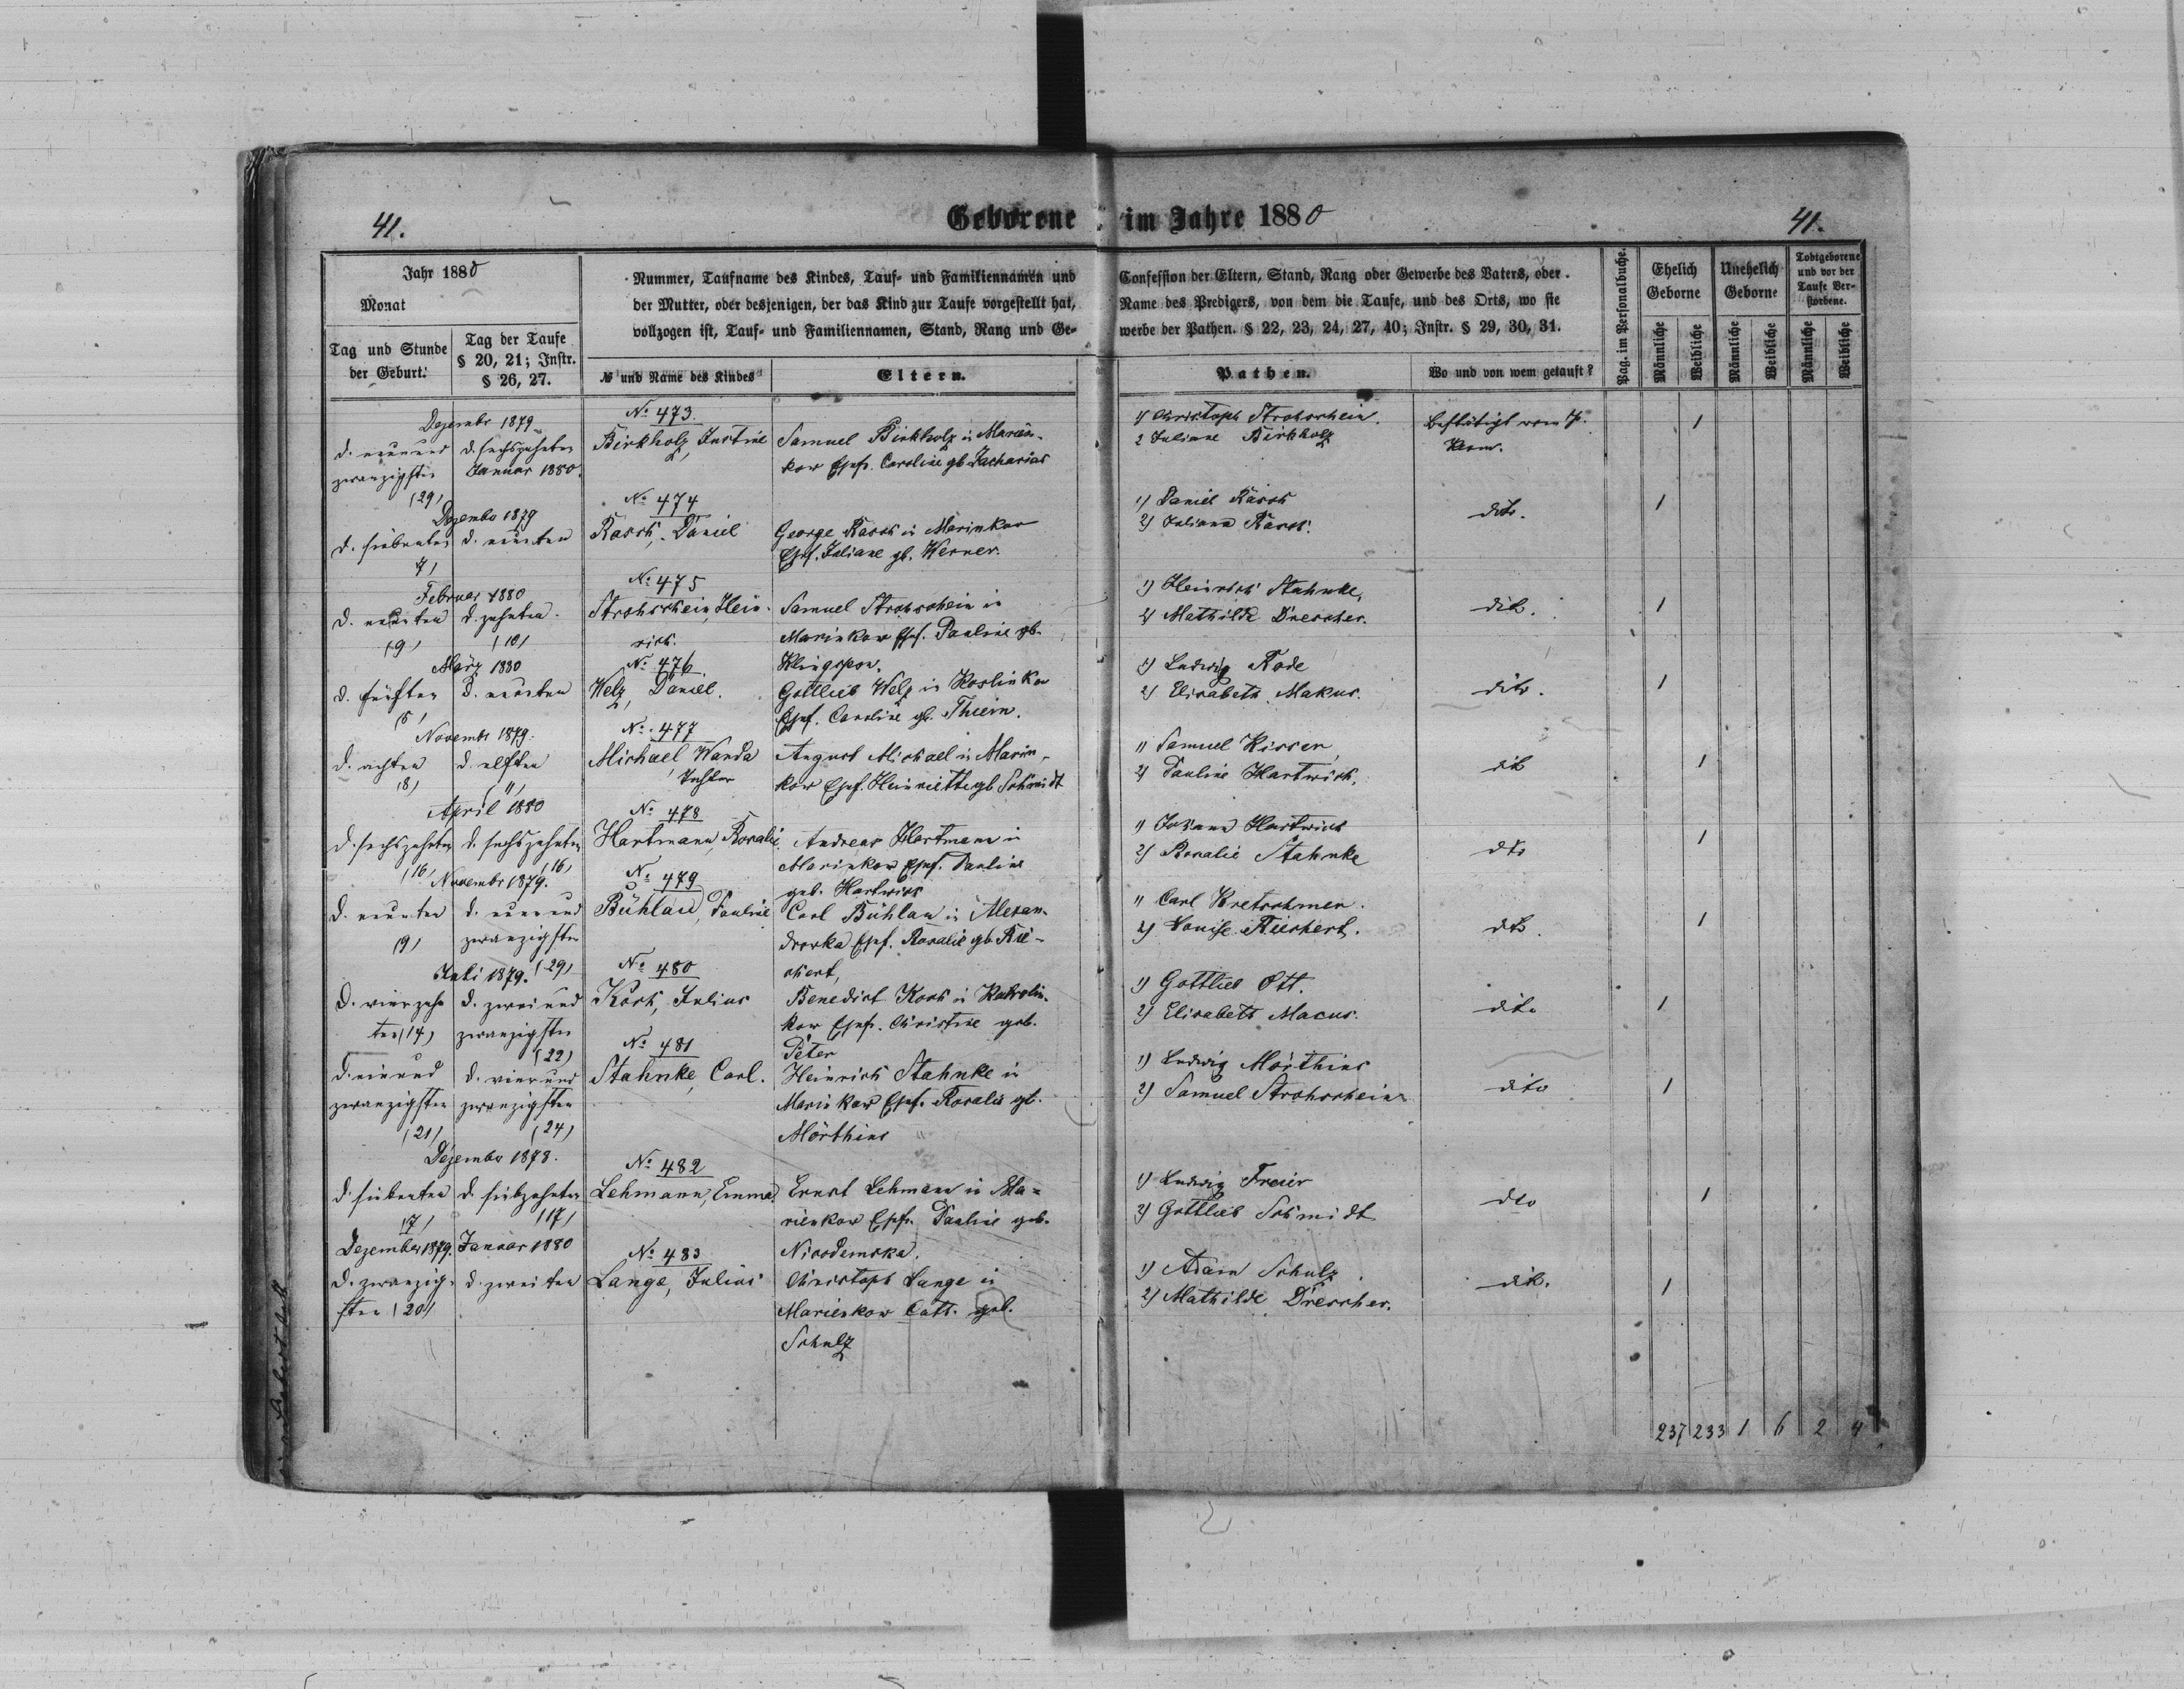 41.
Geborene im Jahre 1880
41.
Jahr 1880
Monat
Tag und Stunde der Geburt.
Tag der Taufe § 20, 21; Instr. § 26, 27.
Nummer, Taufname des Kindes, Tauf- und Familiennamen und
der Mutter, oder desjenigen, der das Kind zur Taufe vorgestellt hat,
vollzogen ist, Tauf- und Familiennamen, Stand, Rang und Ge-
№ und Name des Kindes
Eltern.
Confession der Eltern, Stand, Rang oder Gewerbe des Vaters, oder
Name des Predigers, von dem die Taufe, und des Orts, wo sie
werbe der Pathen. § 22, 23, 24, 27, 40; Instr. § 29, 30, 31.
Pathen.
Wo und von wem getauft?
Pag. im Personalbuche.
Ehelich Geborne
Unehelich Geborne
Todtgeborene und vor der Taufe Verstorbene.
Männliche
Weibliche
Männliche
Weibliche
Männliche
Weibliche
Dezembr 1879
d. neunund
zwanzigsten
(29)
d. sechszehnten
Januar 1880.
No 473.
Birkholz, Justine
Samuel Birkholz in Marien-
kow Ehef. Caroline gb. Zacharias
1) Christoph Strohschein.
2 Juliane Birkholz
Bestätigt vom
1
Dezembr 1879
d. siebenten
7)
d. neunten
No 474
Rasch, Daniel
George Rasch in Marinkow
Ehef. Juliane gb. Werner.
1) Daniel Rasch
2) Juliana Rasch.
dito.
1
Februar 1880
d. neunten
(9)
d. zehnten.
(10)
No 475
Strohschein, Hein-
rich.
Samuel Strohschein in
Marinkow Ehef. Pauline gb.
Klingspon.
1) Heinrich Stahnke,
2) Mathilde Drescher.
dito.
1
März 1880
d. fünften
(5)
d. neunten
No 476
Welz, Daniel.
Gottlieb Welz in Koslinkow
Ehef. Caroline gb. Thiem.
1) Ludwig Rode
2) Elisabeth Makus.
dito.
1
Novembr 1879.
d. achten
(8)
d. elften
(11)
No 477
Michael Wanda
August Michael in Marin-
kow Ehef. Heinriette gb Schmidt
1) Samuel Risser,
2) Pauline Hartwich,
dito
1
April 1880
d. sechszehnten
(16)
d. sechszehnten
(16)
No 478
Hartmann, Rosalie.
Andreas Hartmann in
Marinkow Ehef. Pauline
geb. Hartwich
1) Johann Hartwich
2) Rosalie Stahnke
dto
1
Novembr 1879.
d. neunten
(9)
d. neunund
zwanzigsten
(29)
No 479
Bühlau, Pauline
Carl Bühlau in Alexan-
drovka Ehef. Rosalie gb. Rei-
chert,
1) Carl Kretschmer.
2) Louise Reichert.
dto.
1
Juli 1879.
d. vierzehn
ten (14)
d. zwei und
zwanzigsten
(22)
No 480
Koch, Julius
Benedict Koch in
kow Ehef. Christine geb.
Peter
1) Gottlieb Ott.
2) Elisabeth Macus.
dito
1
d. einund
zwanzigsten
(21)
d. vierund
zwanzigsten
(24)
No 481
Stahnke, Carl.
Heinrich Stahnke in
Marinkow Ehef. Rosalie gb.
Mörthins
1) Ludwig Mörthins
2) Samuel Strohschein
dito
1
Dezember 1878.
d. siebenten
(7)
d. siebzehnten
(17)
No 482
Lehmann, Emma.
Ernst Lehmann in Ma-
rienkow Ehef. Pauline geb.
Nicodemska.
1) Ludwig Freier
2) Gottlieb Schmidt
dto
1
Dezember 1879. Januar 1880
d. zwanzig-
sten (20)
d. zweiten
No 483
Lange, Julius
Christoph Lange in
Marienkow Cath. geb.
Schulz
1) Adam Schulz
2) Mathilde Drescher.
dito.
1
237 233 1 6 2 4